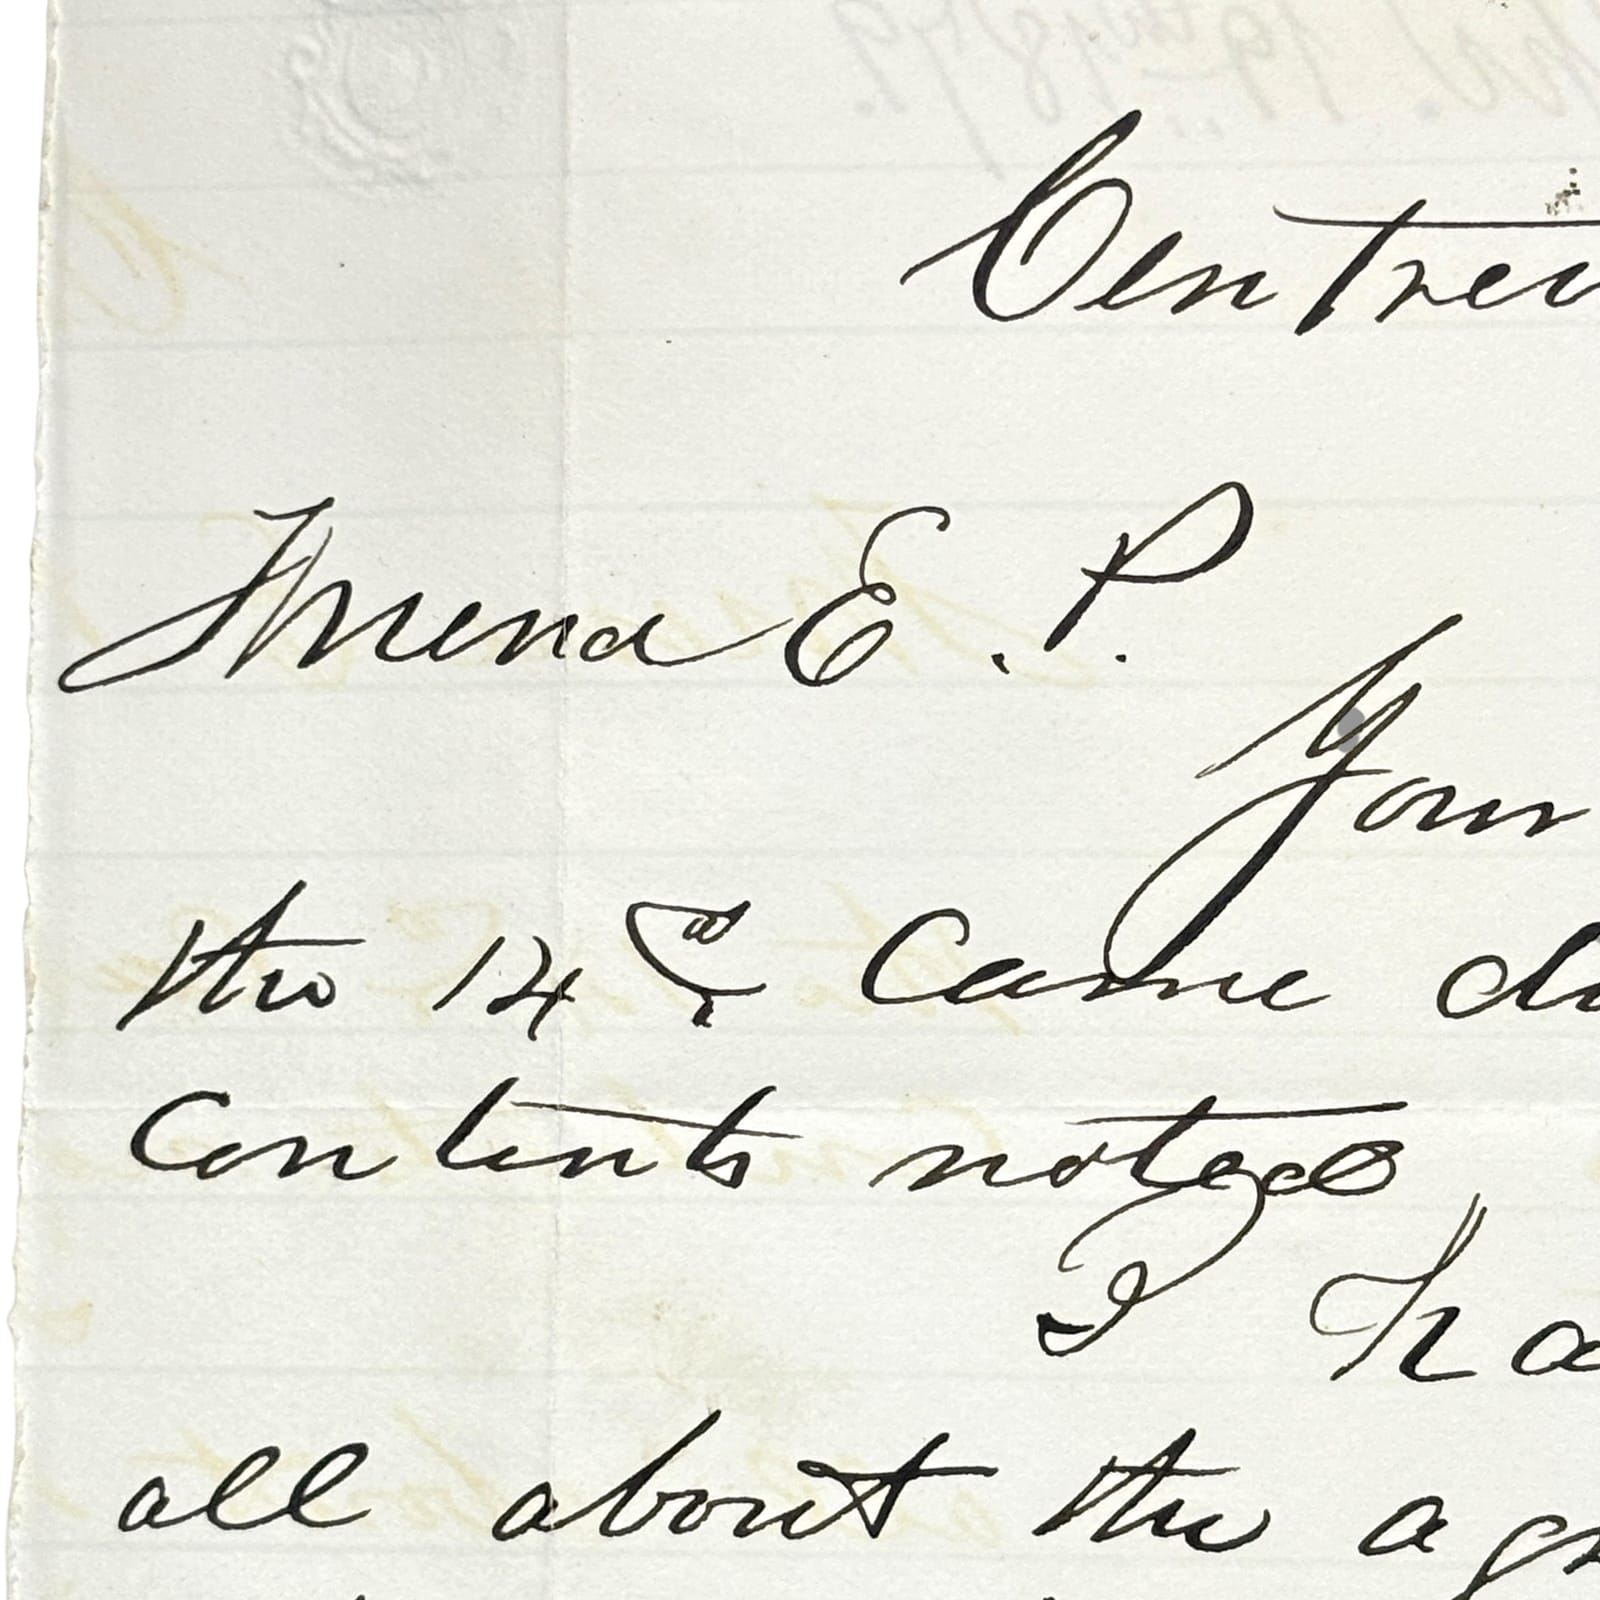 Centrev
Friend E. P.
Your
the 14th Came du
Contents noted
I ha
all about the agr